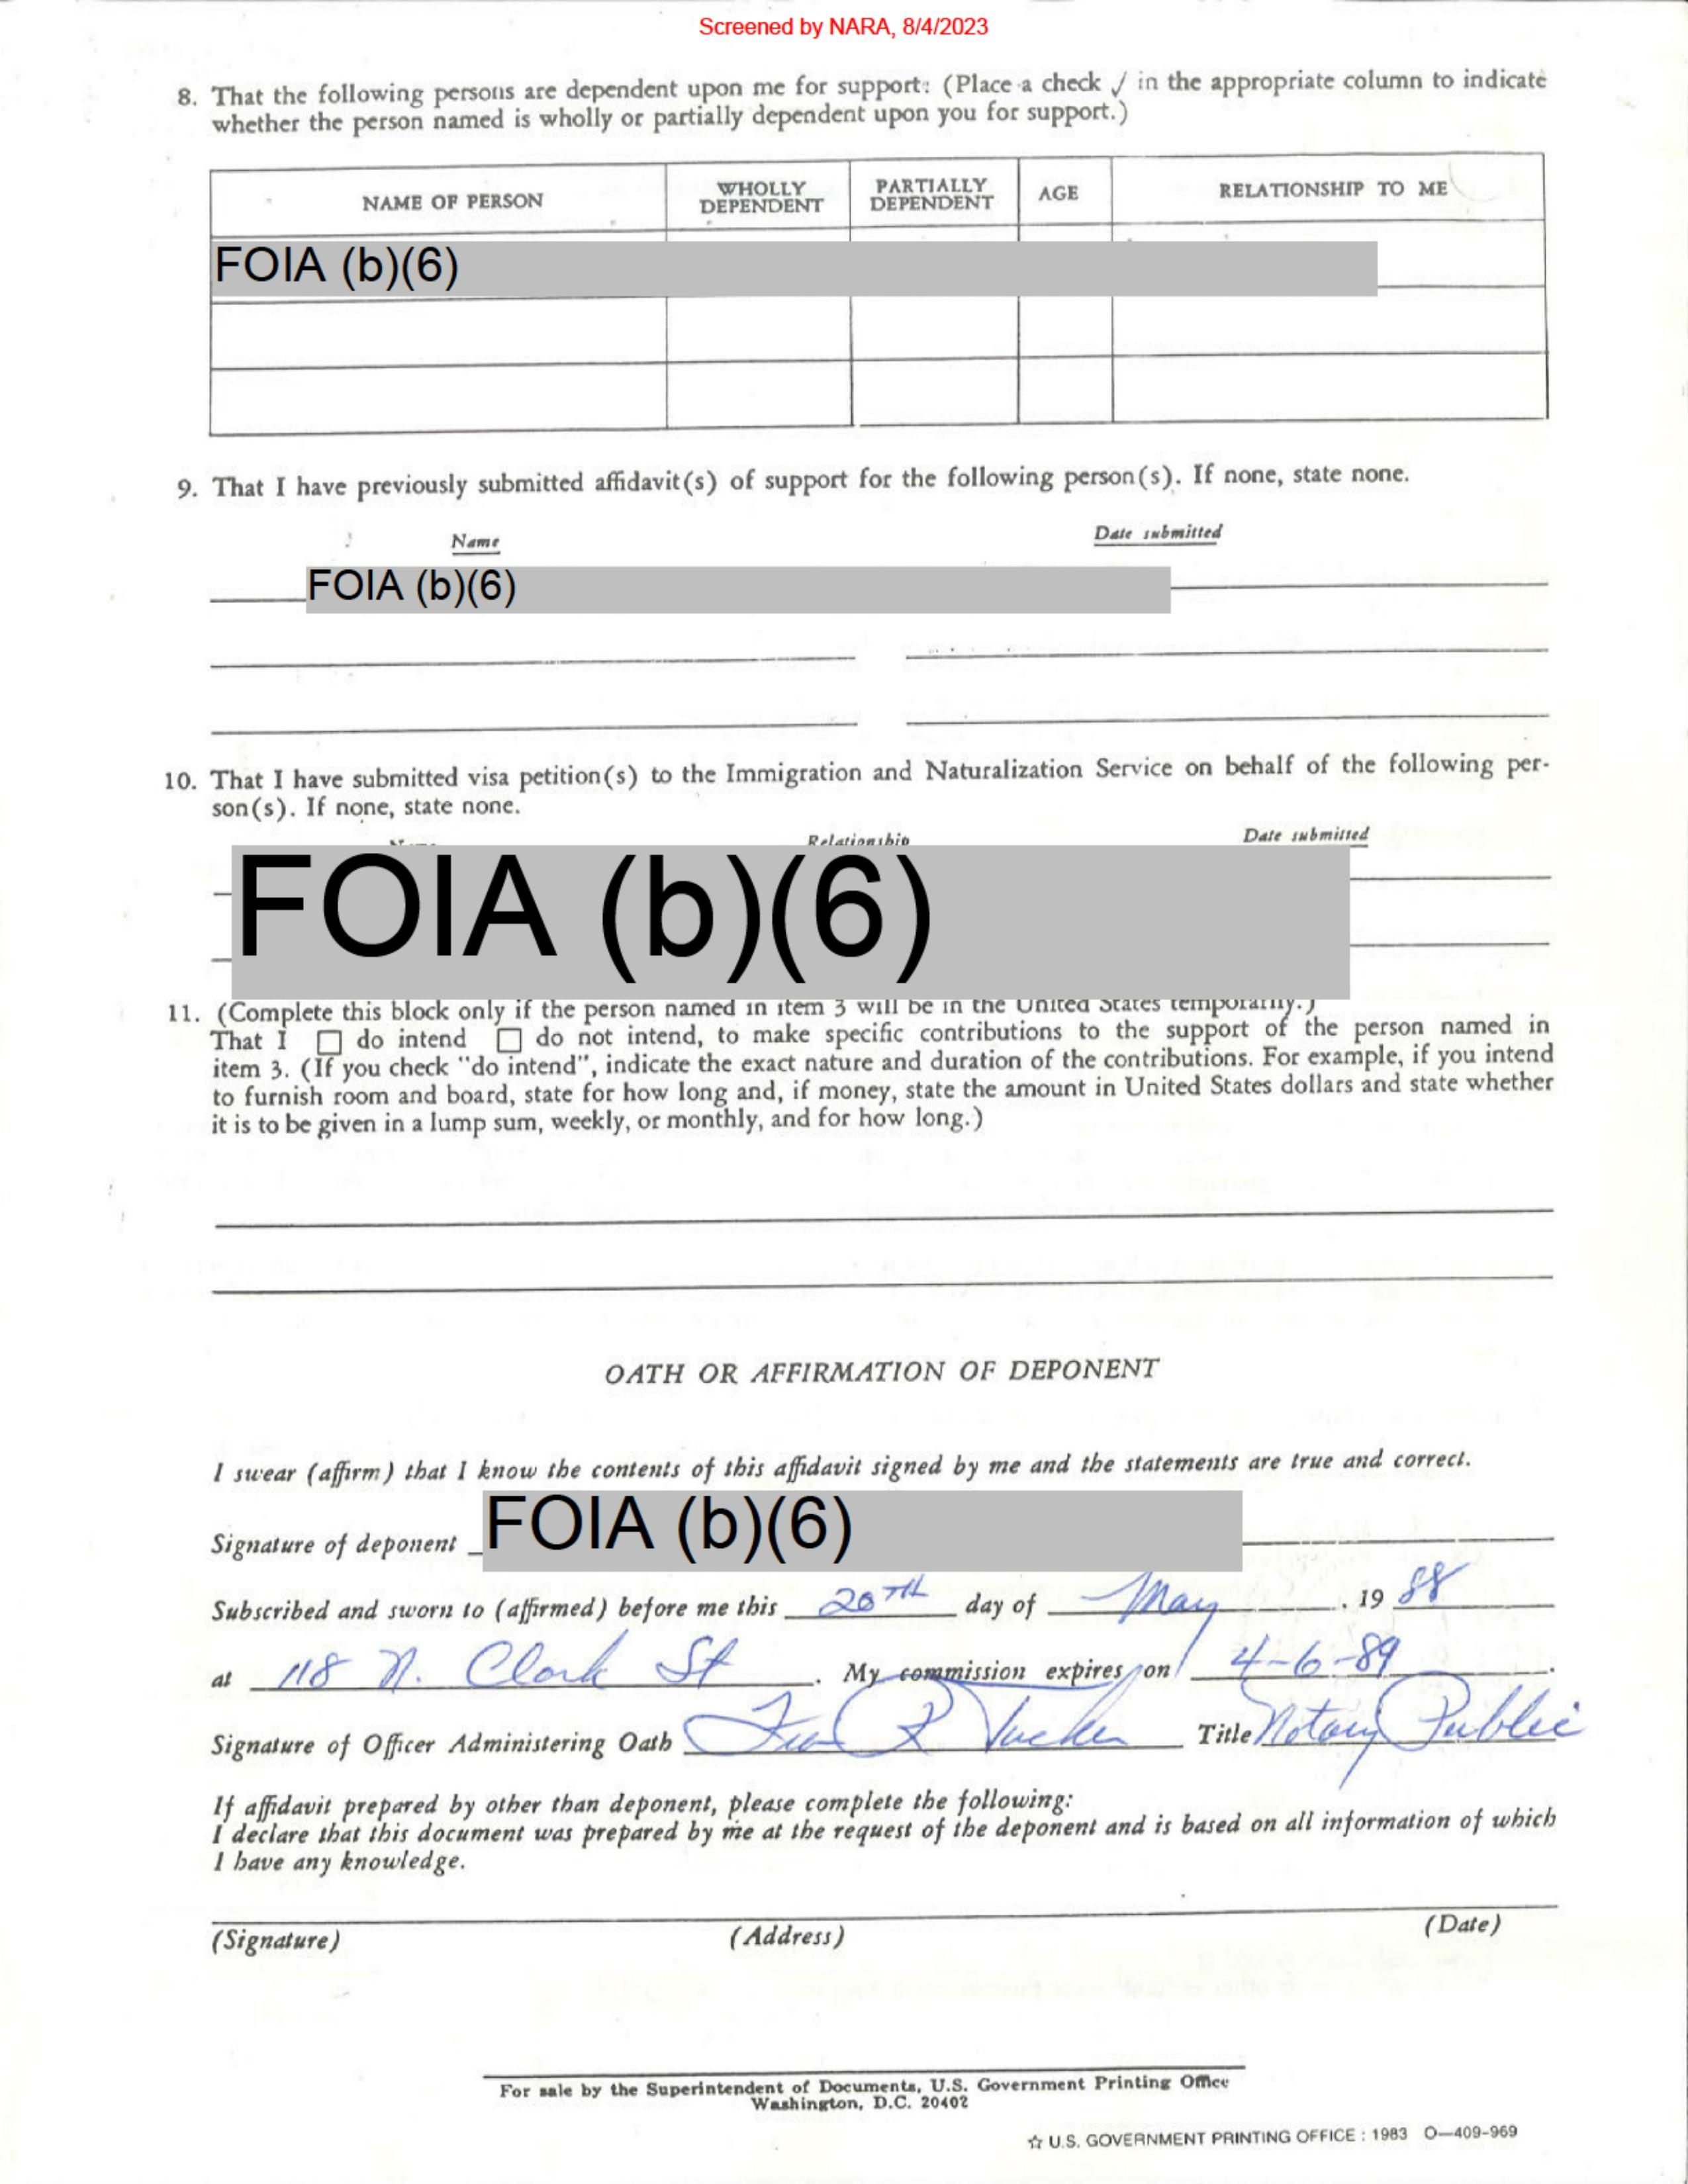 Screened by NARA, 8/4/2023
8. That the following persons are dependent upon me for support: (Place a check √ in the appropriate column to indicate
whether the person named is wholly or partially dependent upon you for support.)
NAME OF PERSON
WHOLLY DEPENDENT
PARTIALLY DEPENDENT
AGE
RELATIONSHIP TO ME
FOIA (b)(6)
9. That I have previously submitted affidavit(s) of support for the following person(s). If none, state none.
Name
Date submitted
FOIA (b)(6)
10. That I have submitted visa petition(s) to the Immigration and Naturalization Service on behalf of the following per-
son(s). If none, state none.
Relationship
Date submitted
FOIA (b)(6)
11. (Complete this block only if the person named in item 3 will be in the United States temporarily.)
That I ☐ do intend ☐ do not intend, to make specific contributions to the support of the person named in
item 3. (If you check "do intend", indicate the exact nature and duration of the contributions. For example, if you intend
to furnish room and board, state for how long and, if money, state the amount in United States dollars and state whether
it is to be given in a lump sum, weekly, or monthly, and for how long.)
OATH OR AFFIRMATION OF DEPONENT
I swear (affirm) that I know the contents of this affidavit signed by me and the statements are true and correct.
Signature of deponent FOIA (b)(6)
Subscribed and sworn to (affirmed) before me this 20TH day of May, 19 88
at 118 N. Clark St. My commission expires on 4-6-89.
Signature of Officer Administering Oath R Tucker Title Notary Public
If affidavit prepared by other than deponent, please complete the following:
I declare that this document was prepared by me at the request of the deponent and is based on all information of which
I have any knowledge.
(Signature) (Address) (Date)
For sale by the Superintendent of Documents, U.S. Government Printing Office
Washington, D.C. 20402
☆ U.S. GOVERNMENT PRINTING OFFICE : 1983 O—409-969